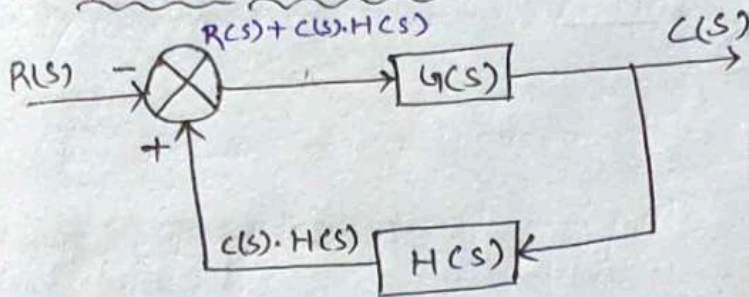 R(S)+C(S).H(S)
C(S)
R(S)
-
G(S)
+
C(S).H(S)
H(S)